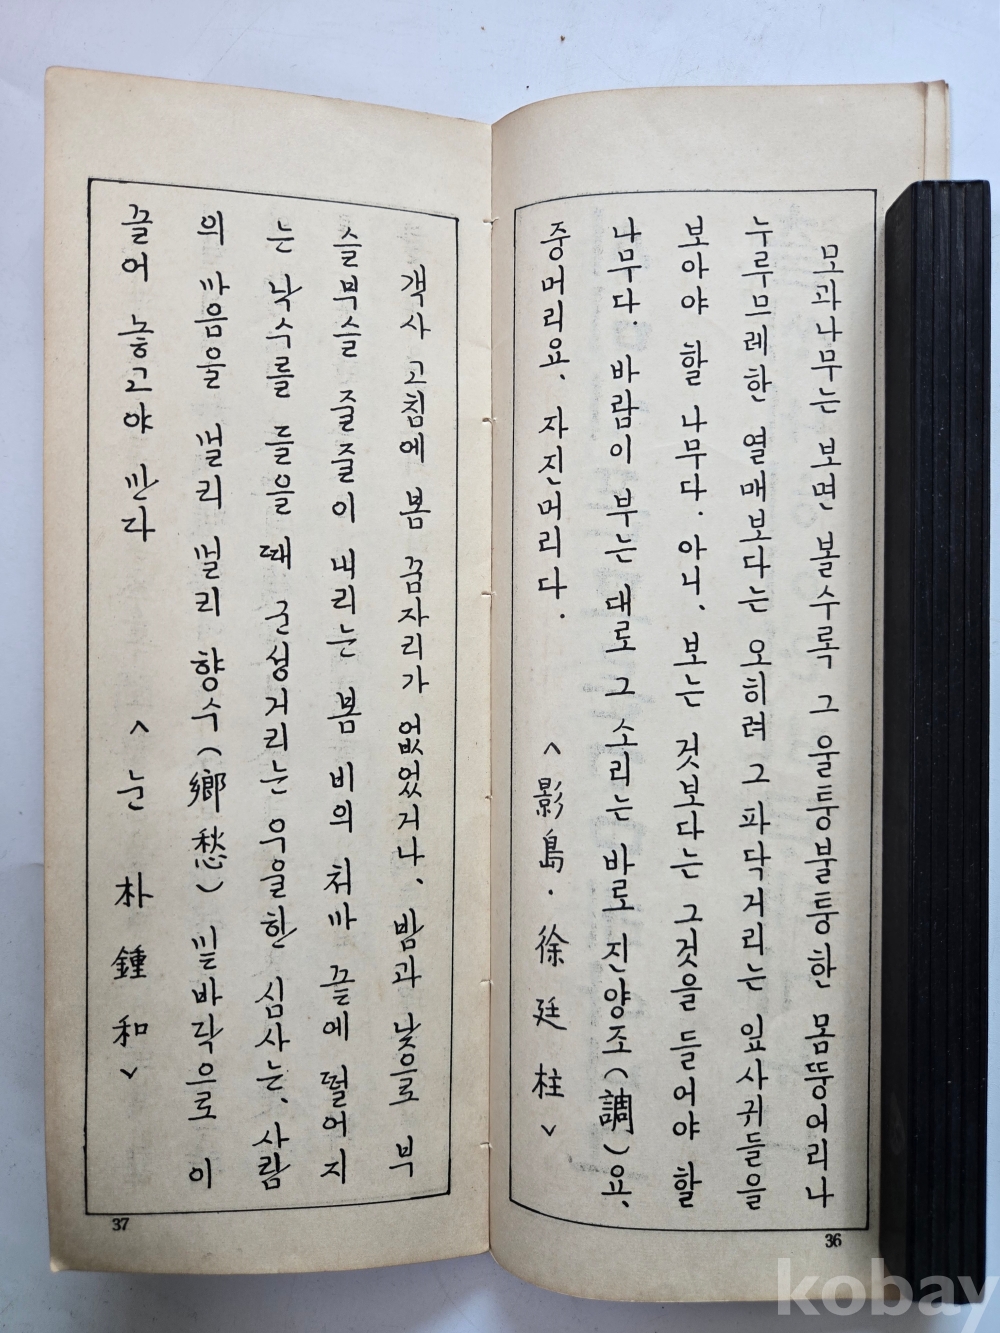 모과나무는 보면 볼수록 그 울퉁불퉁한 몸뚱어리나
누루므레한 열매보다는 오히려 그 파닥거리는 잎사귀들을
보아야 할 나무다. 아니, 보는 것보다는 그것을 들어야 할
나무다. 바람이 부는 대로 그 소리는 바로 진양조(調)요,
중머리요, 자진머리다.
<影島·徐廷柱>
36
객사 고침에 봄 꿈자리가 없었거나, 밤과 낮으로 부
슬부슬 줄줄이 내리는 봄 비의 처마 끝에 떨어지
는 낙수를 들을 때 군성거리는 우울한 심사는, 사람
의 마음을 멀리 멀리 향수(鄕愁) 밑바닥으로 이
끌어 놓고야 만다
<눈 朴鍾和>
37
kobay